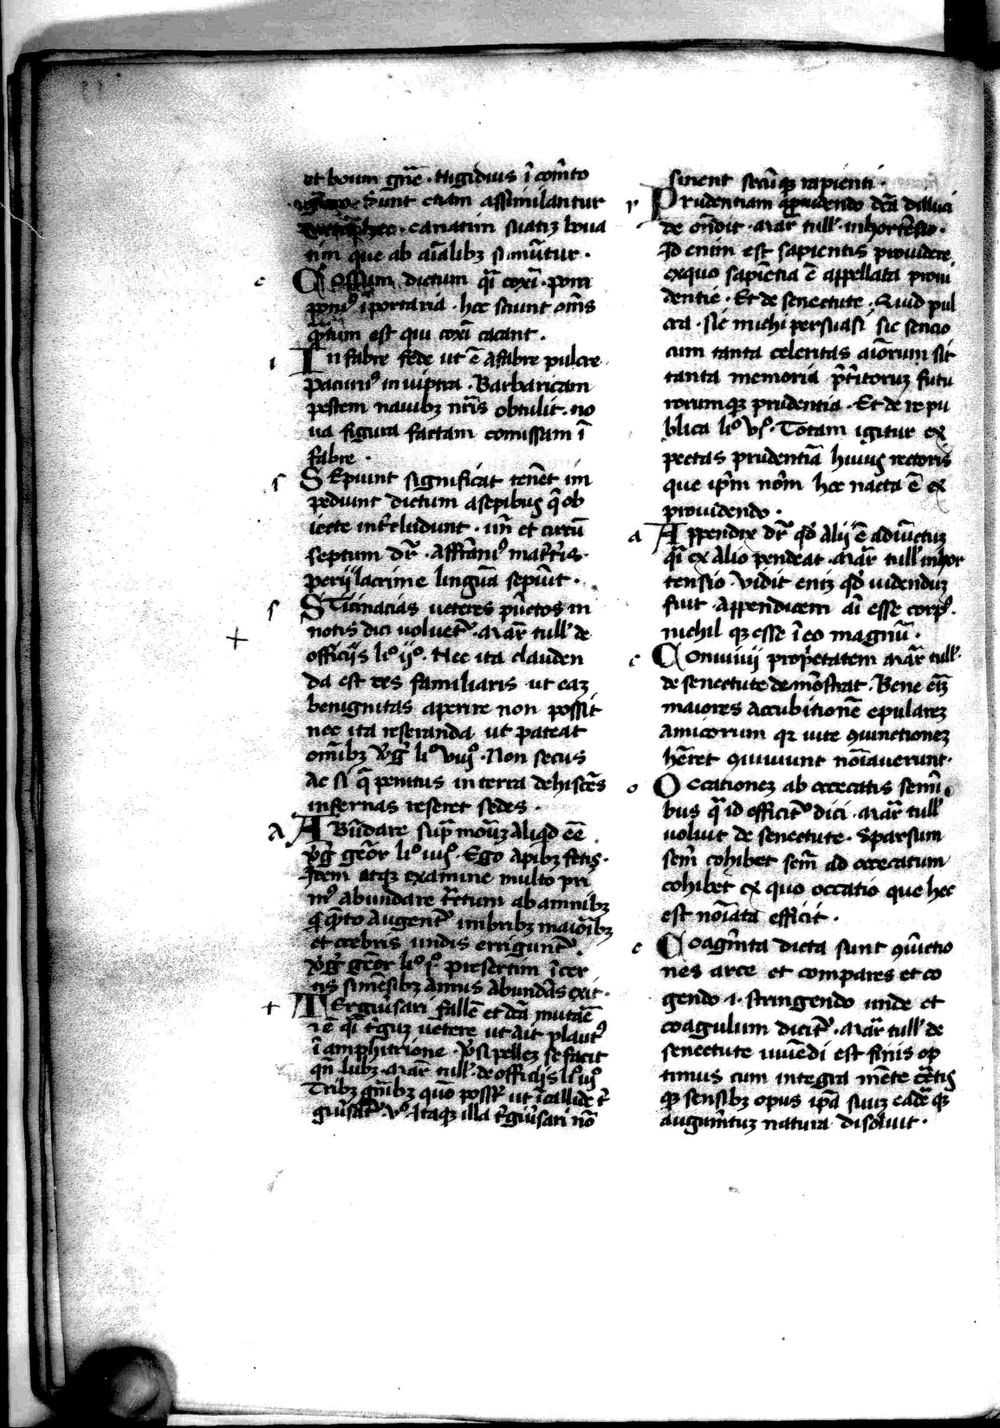 et boum gn̄e · Nigidius ī com̄to
sunt etiam assimilantur
canatim suatiꝫ boua
tim que ab aīalibꝫ simūtur ·
c Cossim dictum q̄i coxī · pom
ponꝰ ī portaria · hec sciunt om̄s
q̄tum est qui coxī cacant ·
i In fabre fede ut ē affabre pulcre
pacuuiꝰ in niptra · Barbaricam
pestem nauibꝫ nr̄is obtulit · no
ua figura factam comissam ī
fabre ·
s SEpiunt significat tenēt im
pediunt dictum a sepibus q̄ ob
iecte int̄cludunt · un̄ et circū
septum dr̄ · Affraniꝰ mat̄tis ·
perij lacrime linguā sepiūt ·
s STicinacias ueteres pūctos in
notis dici uoluer̄t · Mar̄ tull̄ de
officijs liº ijº · Nec ita clauden
da est res familiaris ut eaꝫ
benignitas aperire non possit
nec ita reseranda ut pateat
om̄ibꝫ v̄ḡ liº viijº · Non secus
ac si q̄ penitus in terra dehiscēs
infernas reseret sedes ·
A ABūdare sup̄ modūꝫ aliqd̄ eē
v̄ḡ geōr liº iiijº · Ego apibꝫ fetis ·
Idem atqꝫ examine multo pri
mꝰ abundare · ab amnibꝫ
q̄ augent̄ imbribꝫ maiōibꝫ
et crebris undis erigunt̄
v̄ḡ geōr liº pº presertim īcer
tis si mēsibꝫ amnis abundās exit ·
+ TErgiūsari fall̄e et dc̄a mutāē
ē q̄i t̄guꝫ uetere ut ait plautꝰ
ī amphitrione · v̄sipelleꝫ se facit
qn̄ lubꝫ · Mar̄ tull̄ de officijs liº iijº
Tribꝫ gn̄ibꝫ quō poss̄t ut ī callide t̄
giūsāt̄ · vº · Itaqꝫ illa t̄giūsari nō
sinent securūqꝫ sapienti ·
p Prudentiam a prouidendo dc̄a diluci
de on̄dit · Mar̄ tull̄ · in hortēsio ·
Id enim est sapientis prouidere
ex quo sapiētia ē appellata proui
dentie · Et de senectute · Quid pul
cra · Sic michi persuasi sic sencio
cum tanta celeritas aīorum sit
tanta memoria p̄t̄itoruꝫ futu
rorumqꝫ prudentia · Et de re pu
blica liº vjº · Totam igitur ex
pectas prudentiā huius rectoris
que ip̄m nom̄ hec nacta ē ex
prouidendo ·
a Appendix dr̄ qd̄ alij ē adiūctuꝫ
q̄i ex alio pendeat · Mar̄ tull̄ in hor
tensio vidit eniꝫ qd̄ uidenduꝫ
fuit · Appendicem aī esse corpꝰ ·
nichil qꝫ esse ī eo magnū ·
c Conuiuij propietatem Mar̄ tull̄ ·
de senectute demōstrat · Bene eīꝫ
maiores accubitionē epulareꝫ
amicorum qꝛ uite ꝯiunctioneꝫ
hēret ꝯuiuiunt noīauerunt ·
o Occationeꝫ ab occecatis semī
bus q̄ id officit̄ dici · Mar̄ tull̄
uoluit de senectute · Sparsum
sem̄ cohibet sem̄ ad occecatum
cohibet ex quo occatio que hec
est noīata efficit ·
c Coagm̄ta dicta sunt ꝯiūctio
nes arce et compares et co
gendo .i. stringendo unde et
coagulum dicit̄ · Mar̄ tull̄ de
senectute uiuēdi est finis op
timus cum integra mēte cētis
qꝫ sensibꝫ opus ip̄a suuꝫ eadē qꝫ
augum̄tuꝫ natura dissoluit ·